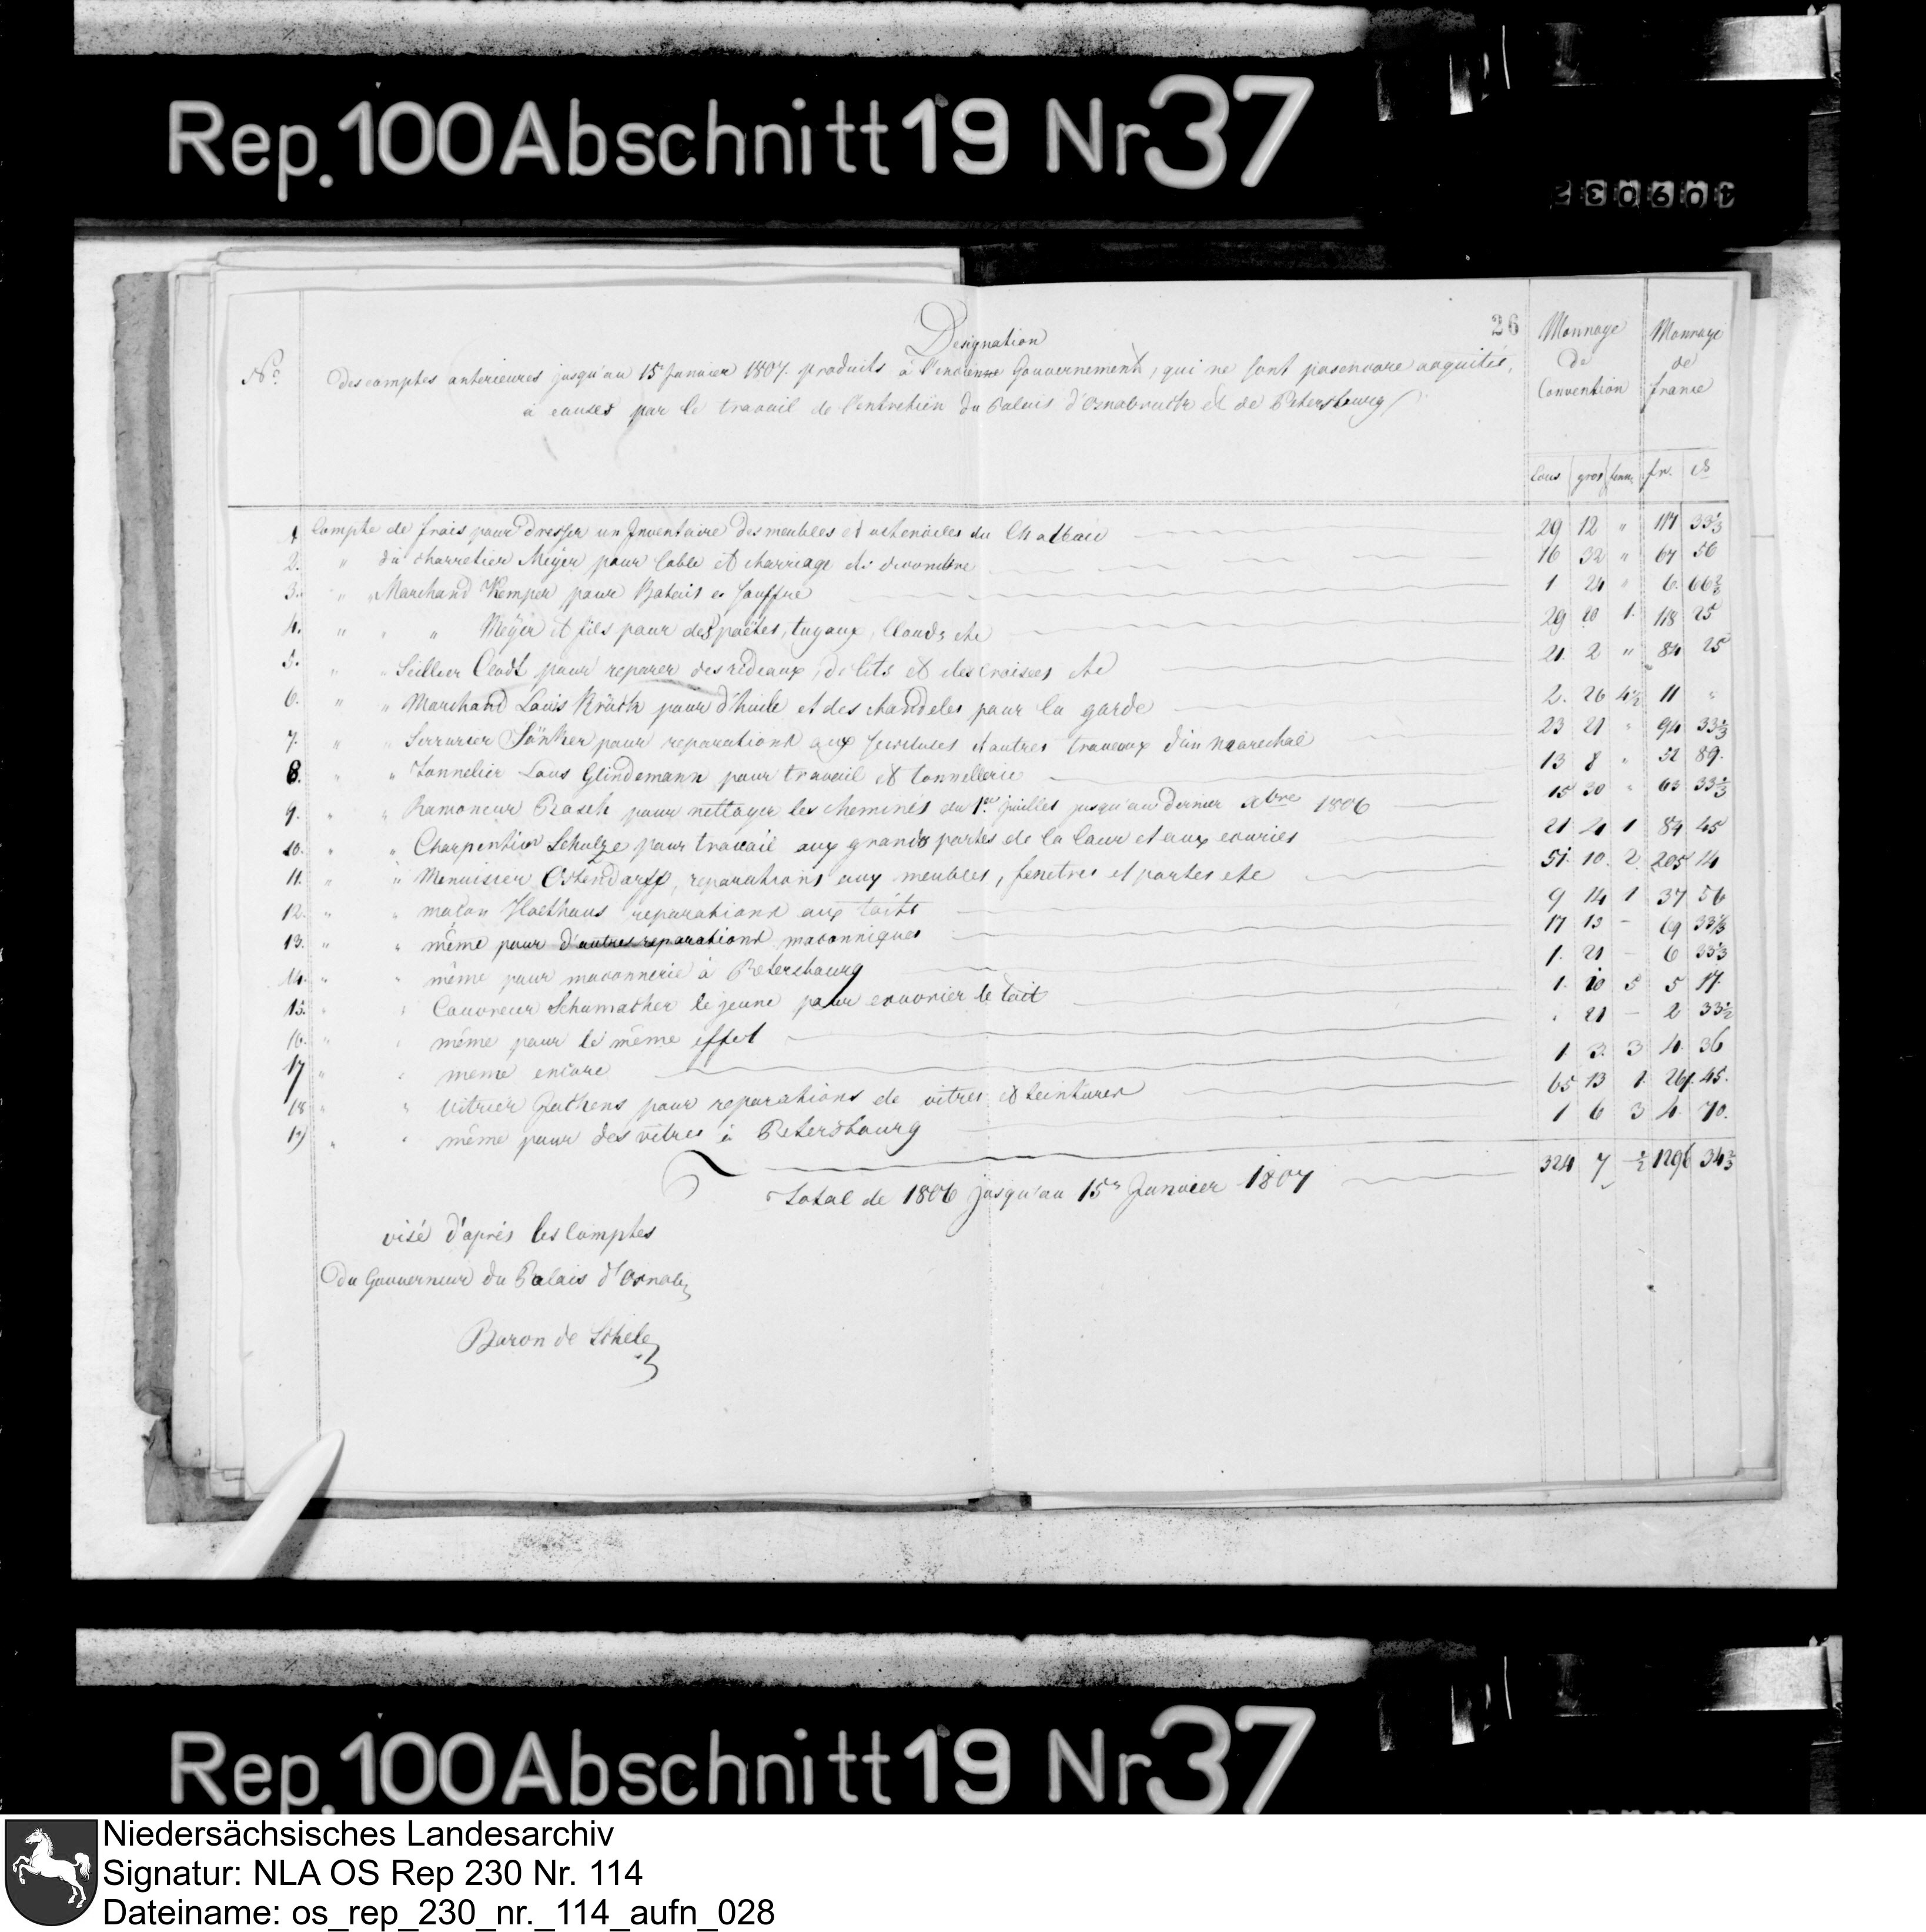 Rep. 100 Abschnitt 19 Nr 37
409032
26
Designation
No.
des comptes anterieures jusqu'au 15 Janvier 1807. produits à l'ancienne Gouvernement, qui ne sont pas encore acquités,
à causes par le travail de l'entretien du Palais d'Osnabruck et de Petersbourg
Monnaye de Convention
Monnaye de france
gros
fr.
1. Compte de frais pour dresser un Inventaire des meubles et ustensiles du Chateau 29 12 " 117 33⅓
2. " du charretier Meyer pour sable et charriage de decombre 16 32 " 67 56
3. " " Marchand Kemper pour Balais et souffre 1 24 " 6. 66⅔
4. " " " Meyer et fils pour des poëles, tuyaux, Clouds etc 29 20 1. 118 25
5. " " Sellier Clodt pour reparer des rideaux, de lits et des croisees etc 21. 2 " 84 25
6. " " Marchand Louis Kräck pour d'huile et des chandeles pour la garde 2. 26 4½ 11 "
7. " " Serrurier Sönker pour reparations aux serrures et autres traveaux d'un marechal 23 21 " 94 33⅓
8. " " Tonnelier Louis Glindemann pour travail et tonnellerie 13 8 " 52 89.
9. " " Ramoneur Rasch pour nettoyer les cheminés du 1er juillet jusqu'au dernier Xbre 1806 15 30 " 63 33⅓
10. " " Charpentier Schulze pour travail aux grands portes de la Cour et aux ecuries 21 4 1 84 45
11. " " Menuisier Ostendorff, reparations aux meubles, fenetres et portes etc 51. 10. 2. 205 14
12. " " maçon Holthaus reparations aux toits 9 14 1 37 56
13. " " même pour d'autres reparations maconniques 17 13 – 69 33⅓
14. " " même pour maconnerie à Petersbourg 1. 21 – 6 33⅓
15. " " Couvreur Schumacher le jeune pour couvrier le toit 1. 10 5 5 17.
16. " " même pour le même effet " 21 – 2 33⅓
17 " " meme encore 1. 3. 3 4. 36
18 " " Vitrier Juthens pour reparations de vitres et teintures 65 13 1. 261. 45.
19 " " même pour des vitres à Petersbourg 1 6 3 4. 70.
Total de 1806 jusqu'au 15 Janvier 1807 324 7 –½ 1296 34⅔
visé d'après les Comptes
du Gouverneur du Palais d'Osnab
Baron de Schele
Rep. 100 Abschnitt 19 Nr 37
Niedersächsisches Landesarchiv
Signatur: NLA OS Rep 230 Nr. 114
Dateiname: os_rep_230_nr._114_aufn_028